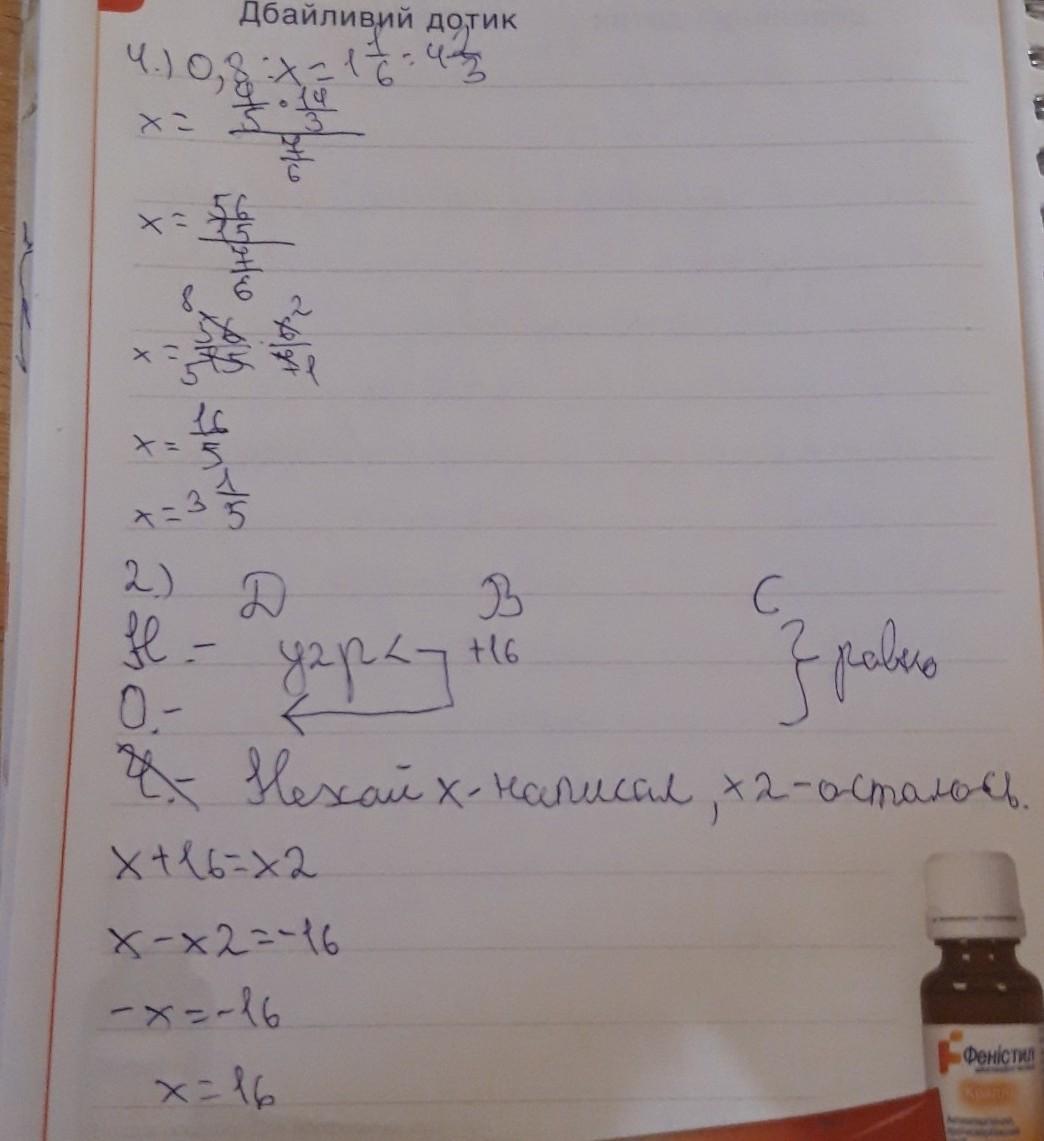 Дбайливий дотик
4.) 0,8 : x = 1 1/6 : 4 2/3
x = 4/5 · 14/3 / 7/6
x = 56/15 / 7/6
x = 56/15 · 6/7 8 5 2 1
x = 16/5
x = 3 1/5
2.) Д В С
Н.- у2р< +16 } равно
О.-
Ч.- Нехай х-написал, х2-осталось.
x+16=x2
x-x2=-16
-x=-16
x=16
Феністил